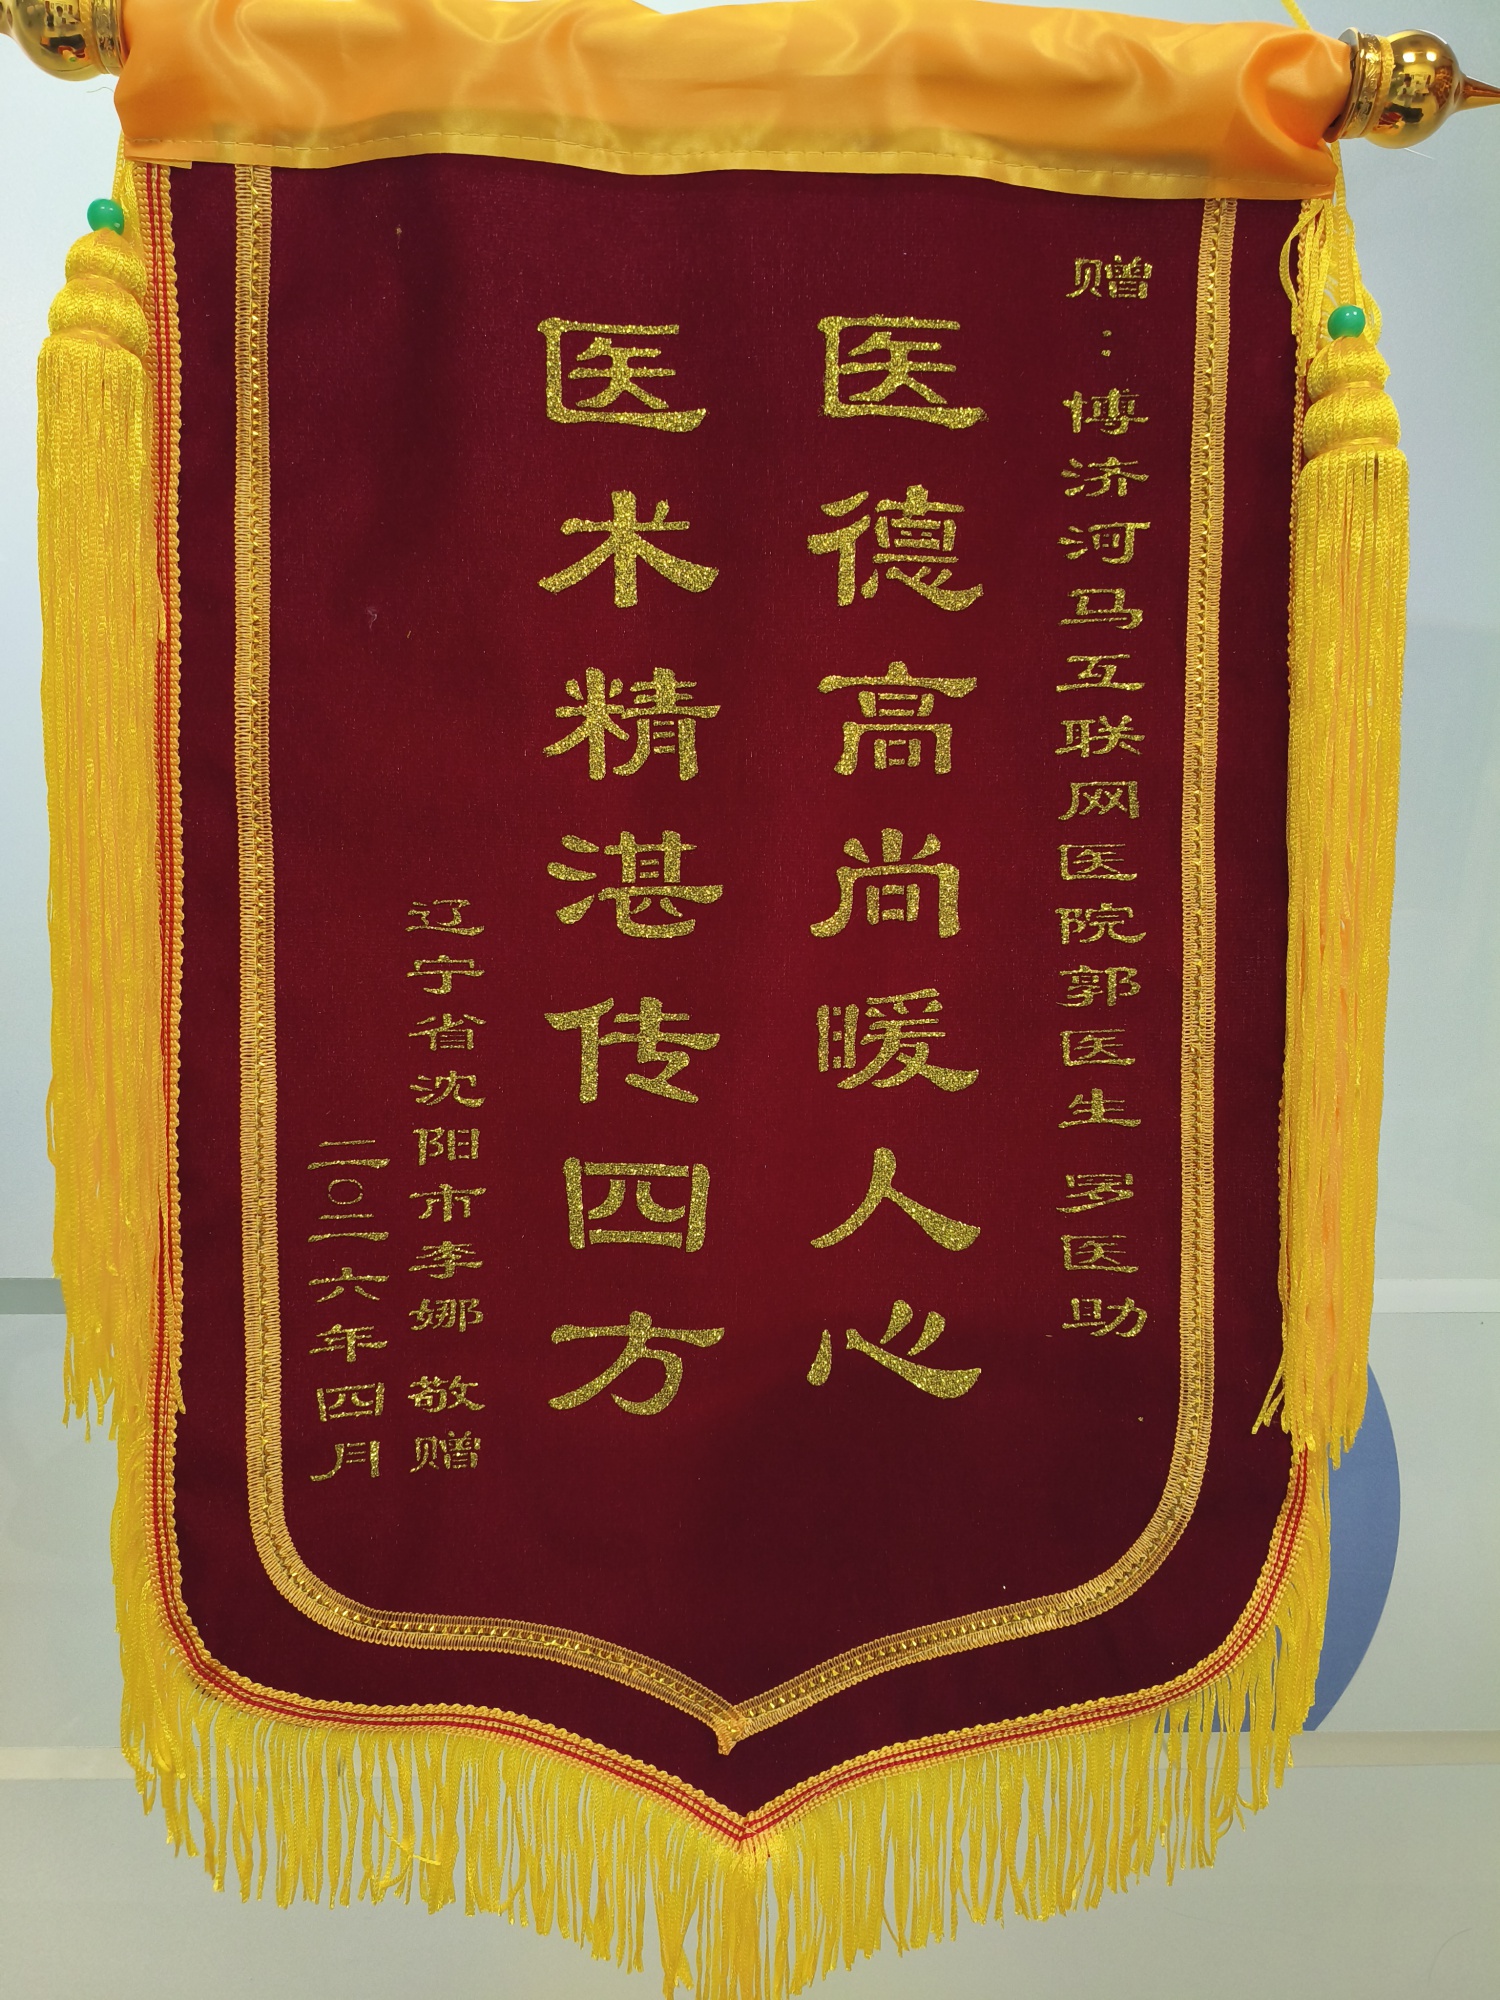 赠：博济河马互联网医院郭医生 罗医助
医德高尚暖人心
医术精湛传四方
辽宁省沈阳市李娜 敬赠
二〇二六年四月